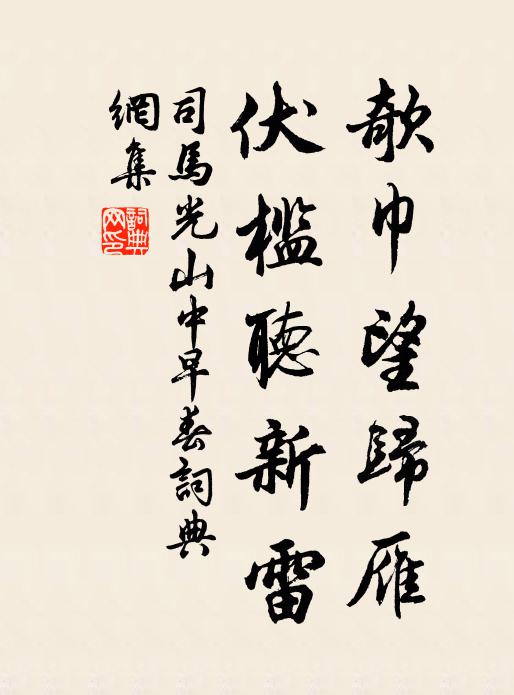 欹巾望歸雁
伏檻聽新雷
司馬光山中早春詞典
網集
詞典網印